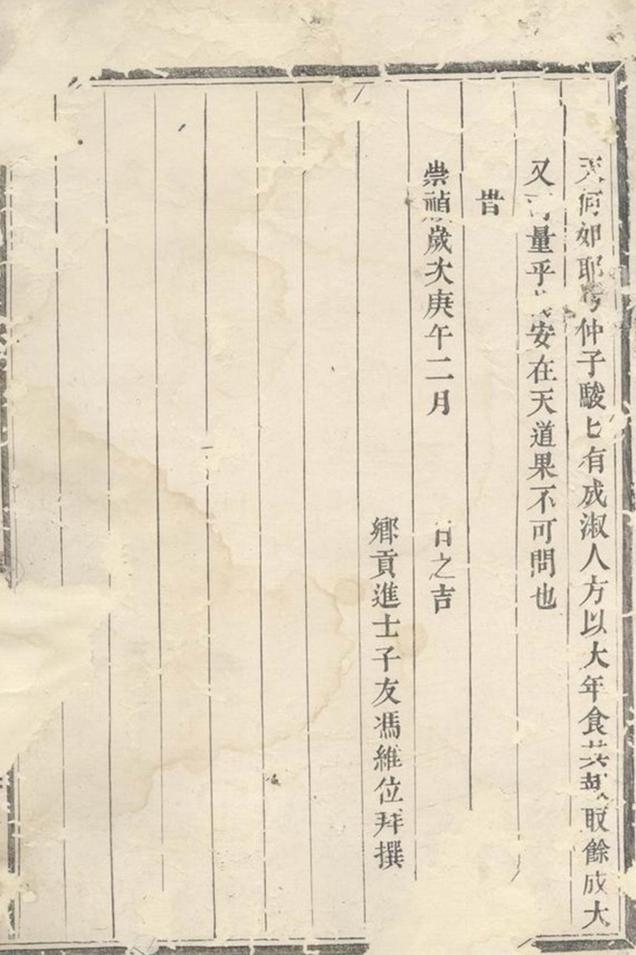 天何如耶 仲子駿 有成淑人方以大年食其報取餘成大
又 量乎 安在天道果不可問也
昔
崇禎歲次庚午二月 日之吉
鄉貢進士子友馮維位拜撰